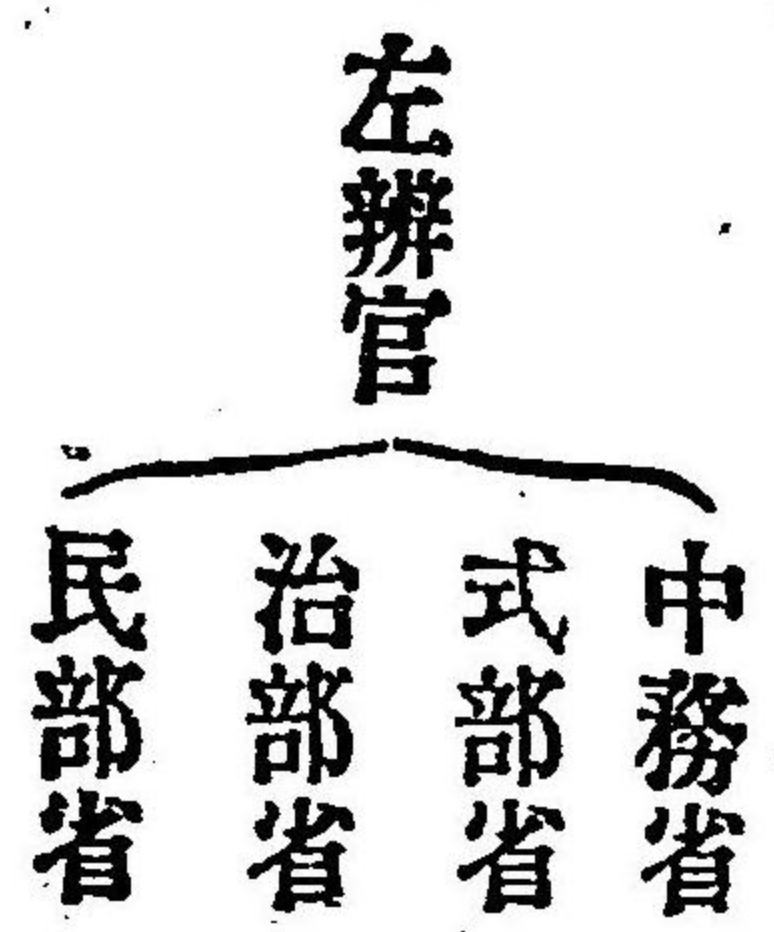 左辨官
中務省
式部省
治部省
民部省